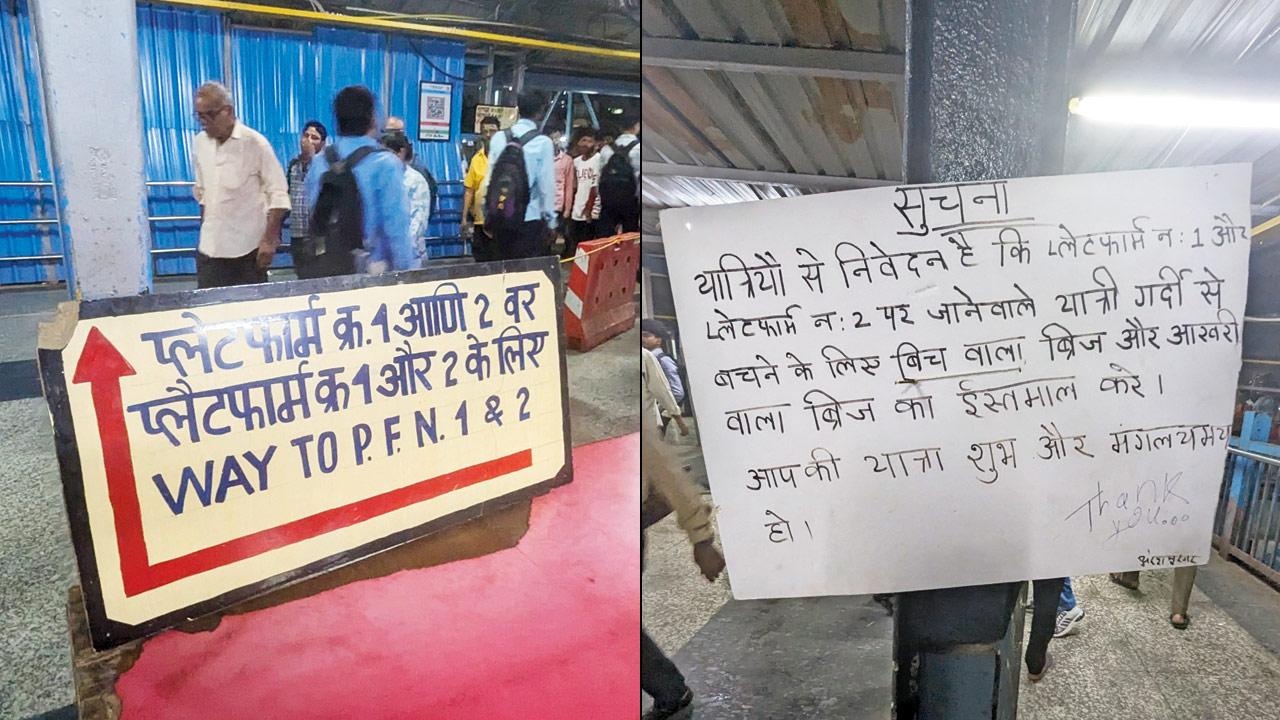 प्लेटफार्म क्र.1 आणि 2 वर
प्लैटफार्म क्र 1 और 2 के लिए
WAY TO P. F. N. 1 & 2
सुचना
यात्रियों से निवेदन है कि प्लेटफार्म न: 1 और
प्लेटफार्म न: 2 पर जानेवाले यात्री गर्दी से
बचने के लिए बिच वाला ब्रिज और आखरी
वाला ब्रिज का ईस्तमाल करे।
आपकी यात्रा शुभ और मंगलयमय
हो।
Thank
you...